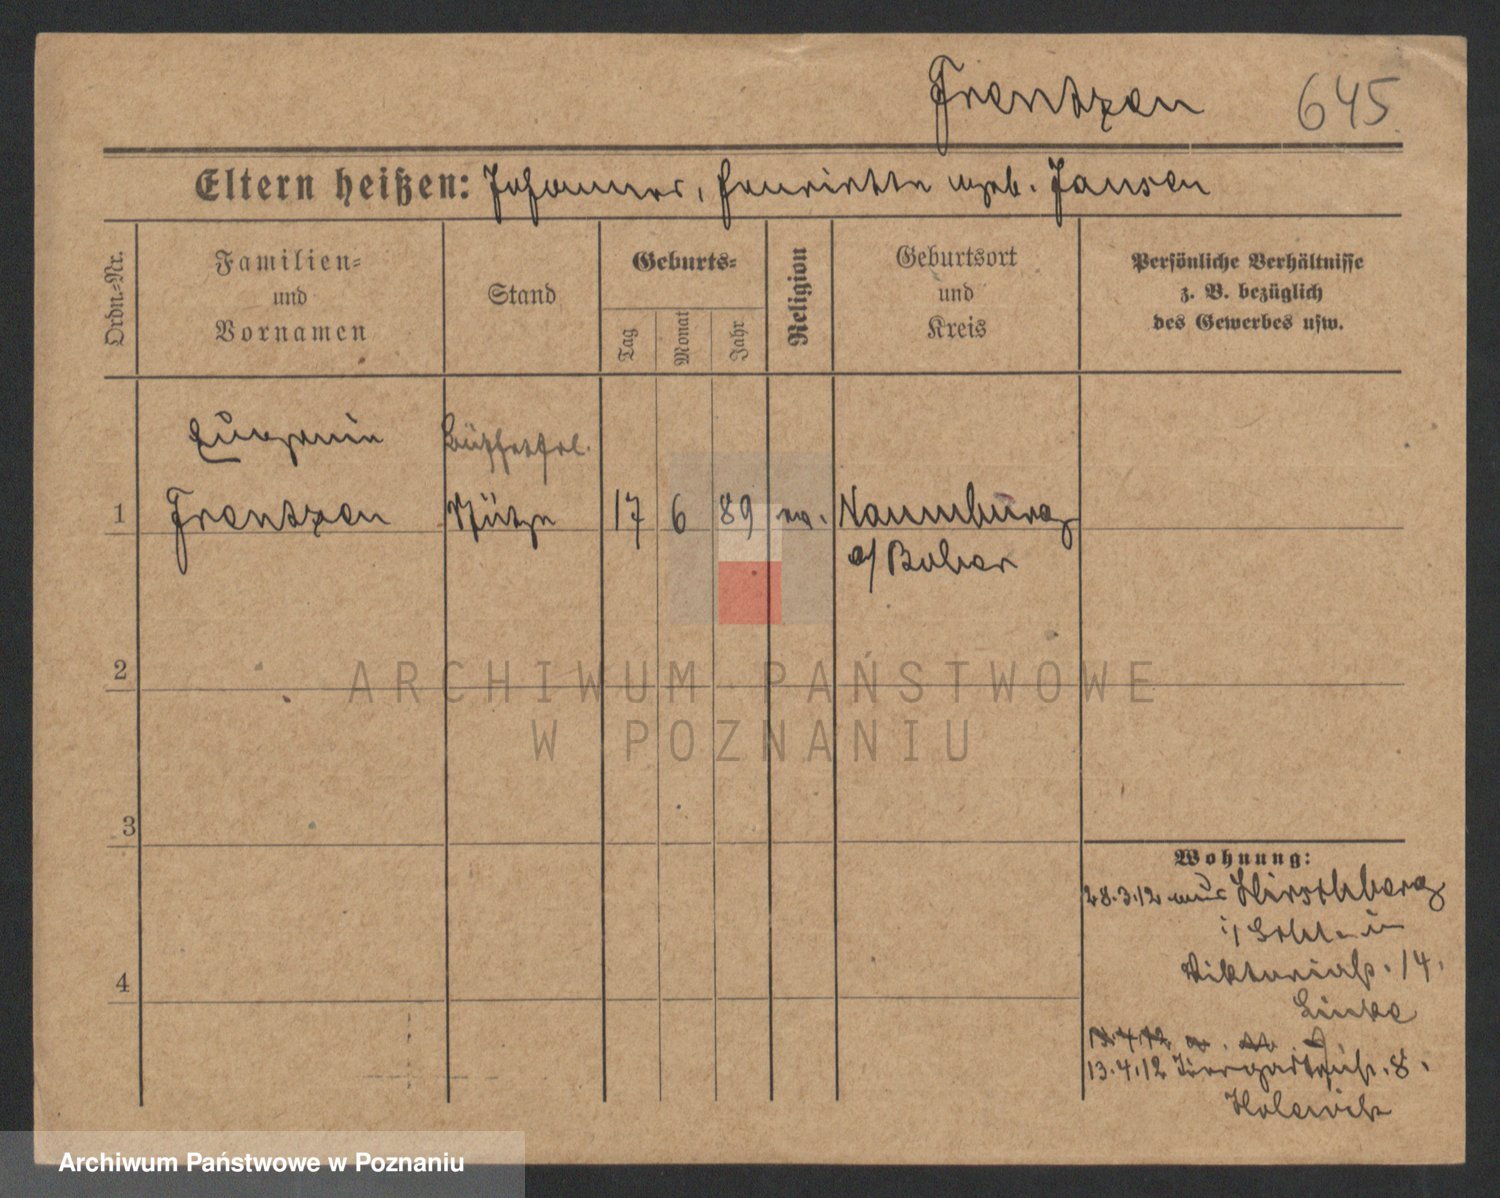 Frentzen 645
Eltern heißen: Johannes, Henriette geb. Jansen
Ordn.-Nr.
Familien-
und
Vornamen
Stand
Geburts-
Tag
Monat
Jahr
Religion
Geburtsort
und
Kreis
Persönliche Verhältnisse
z. B. bezüglich
des Gewerbes usw.
Eugenie Büffetfrl.
1 Frentzen Stütze 17 6 89 ev. Naumburg
a/ Bober
2
3
4
Wohnung:
28.3.12 aus Hirschberg
i/ Schl. in
Viktoriastr. 14.
Linke
13.4.12 Tiergartenstr. 8.
ARCHIWUM PAŃSTWOWE
W POZNANIU
Archiwum Państwowe w Poznaniu